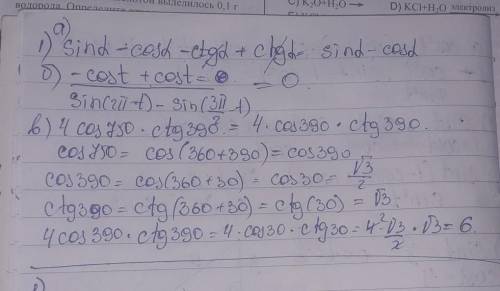 лотой выделилось 0,1 г
водорода. Определите
C) K₂O+H₂O →
D) KCl+H₂O электролиз
а)
1) sinα - cosα - ctgα + ctgα = sinα - cosα
б) (-cost + cost = 0) / (sin(2π-t) - sin(3π-t)) = 0.
в) 4 cos750 · ctg390 = 4 · cos390 · ctg390.
cos750 = cos(360+390) = cos390
cos390 = cos(360+30) = cos30 = √3/2
ctg390 = ctg(360+30) = ctg(30) = √3.
4cos390 · ctg390 = 4 · cos30 · ctg30 = 4² √3/2 · √3 = 6.